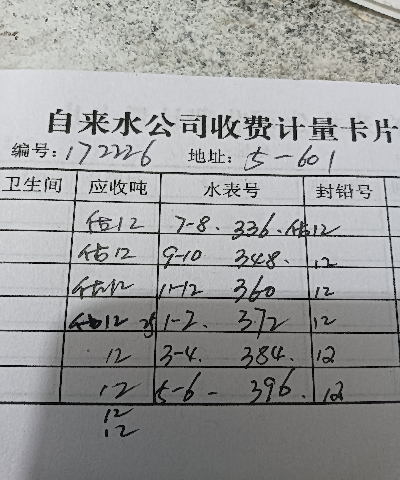 自来水公司收费计量卡片
编号:172226 地址:5-601
卫生间 应收吨 水表号 封铅号
估12 7-8. 336. 估12
估12 9-10 348. 12
估12 11-12 360 12
估12 1-2. 372 12
12 3-4. 384. 12
12 5-6- 396. 12
12
12